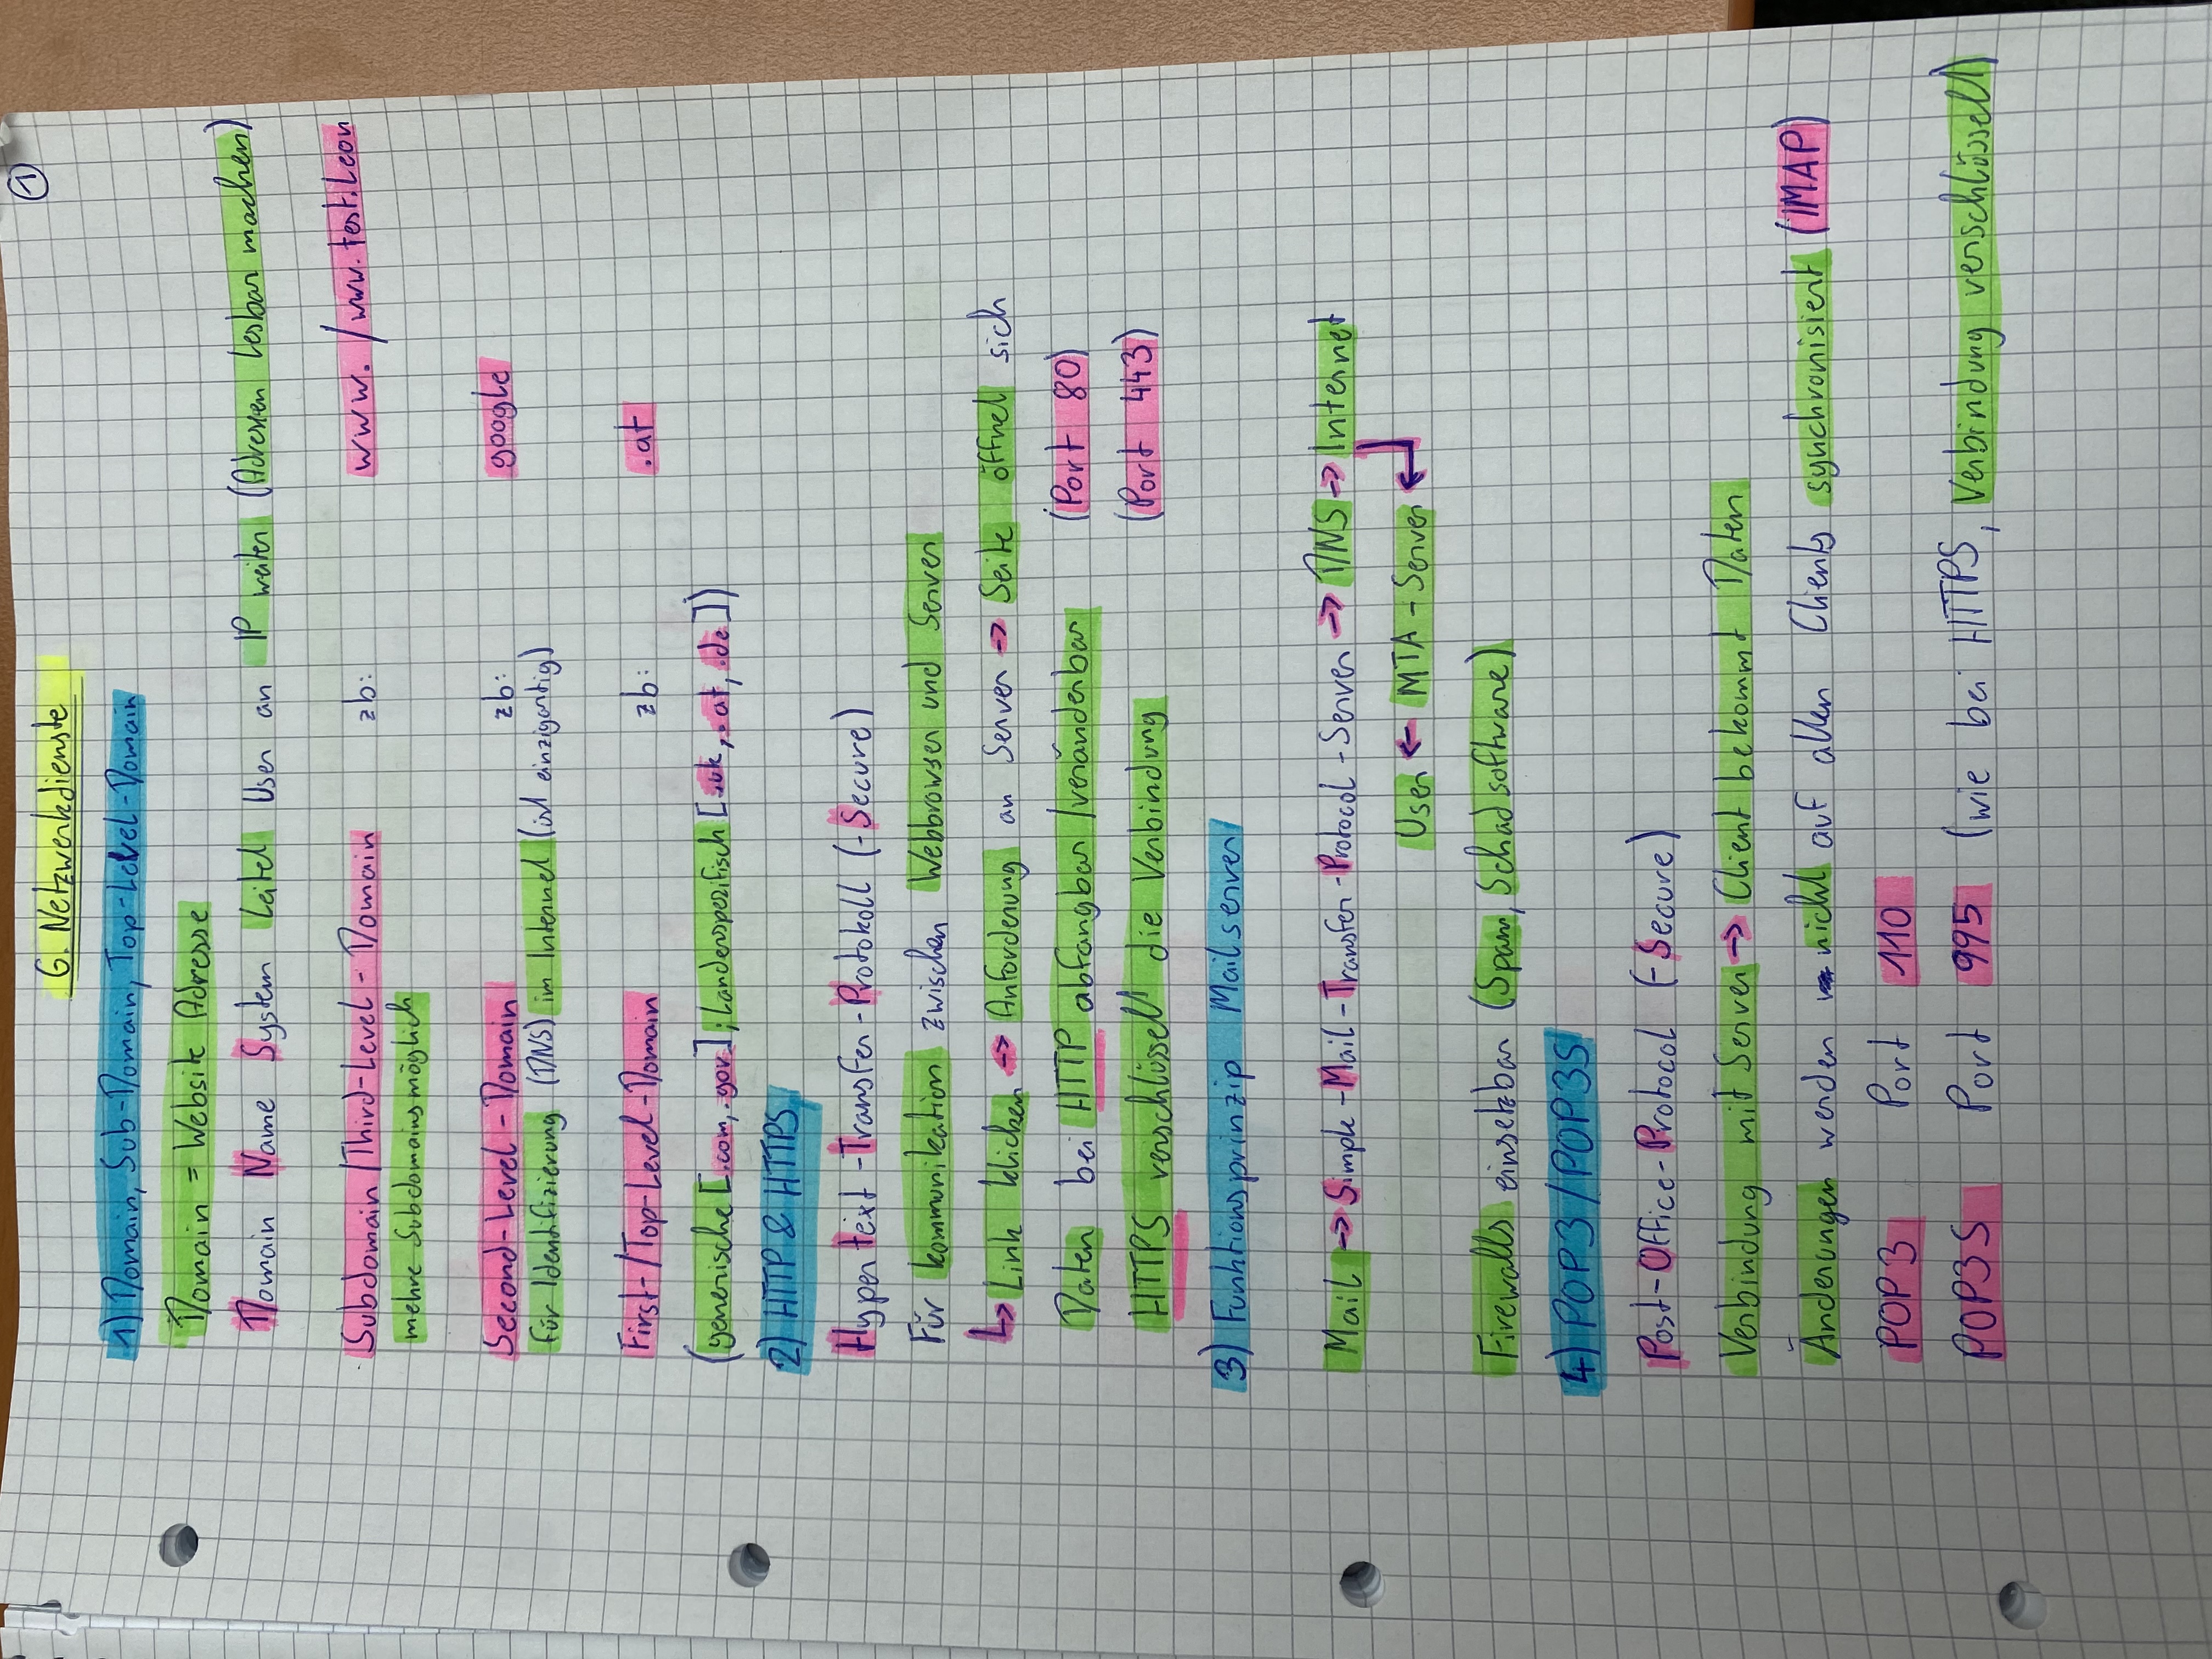 1
6. Netzwerkdienste
1) Domain, Sub-Domain, Top-Level-Domain
Domain = Website Adresse
Domain Name System Leitet User an IP weiter (Adressen lesbar machen)
Subdomain/Third-Level-Domain zb: www. / www.test.leon
mehre Subdomains möglich
Second-Level-Domain zb: google
für Identifizierung (DNS) im Internet (ist einzigartig)
First-/Top-Level-Domain zb: .at
(generische [.com, .gov]; Landerspezifisch [.uk, .at, .de])
2) HTTP & HTTPS
Hyper text -Transfer-Protokoll (-Secure)
Für kommunikation zwischen Webbrowser und Server
↳ Link klicken → Anforderung an Server → Seite öffnet sich
Daten bei HTTP abfangbar/veränderbar (Port 80)
HTTPS verschlüsselt die Verbindung (Port 443)
3) Funktionsprinzip Mailserver
Mail → Simple-Mail-Transfer-Protocol-Server → DNS → Internet
User ← MTA-Server ←
Firewalls einsetzbar (Spam, Schadsoftware)
4) POP3/POP3S
Post-Office-Protocol (-Secure)
Verbindung mit Server → Client bekommt Daten
Änderungen werden nicht auf allen Clients synchronisiert (IMAP)
POP3 Port 110
POP3S Port 995 (wie bei HTTPS, Verbindung verschlüsselt)